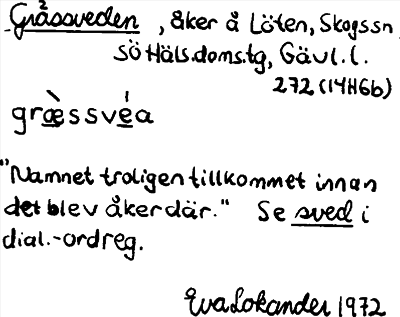 Gråssveden, åker å Löten, Skogssn
SöHäls.doms.tg, Gävl.l.
272 (14H6b)
græ̀ssvéa
"Namnet troligen tillkommet innan
det blev åker där." Se sved i
dial.-ordreg.
Eva Lokander 1972